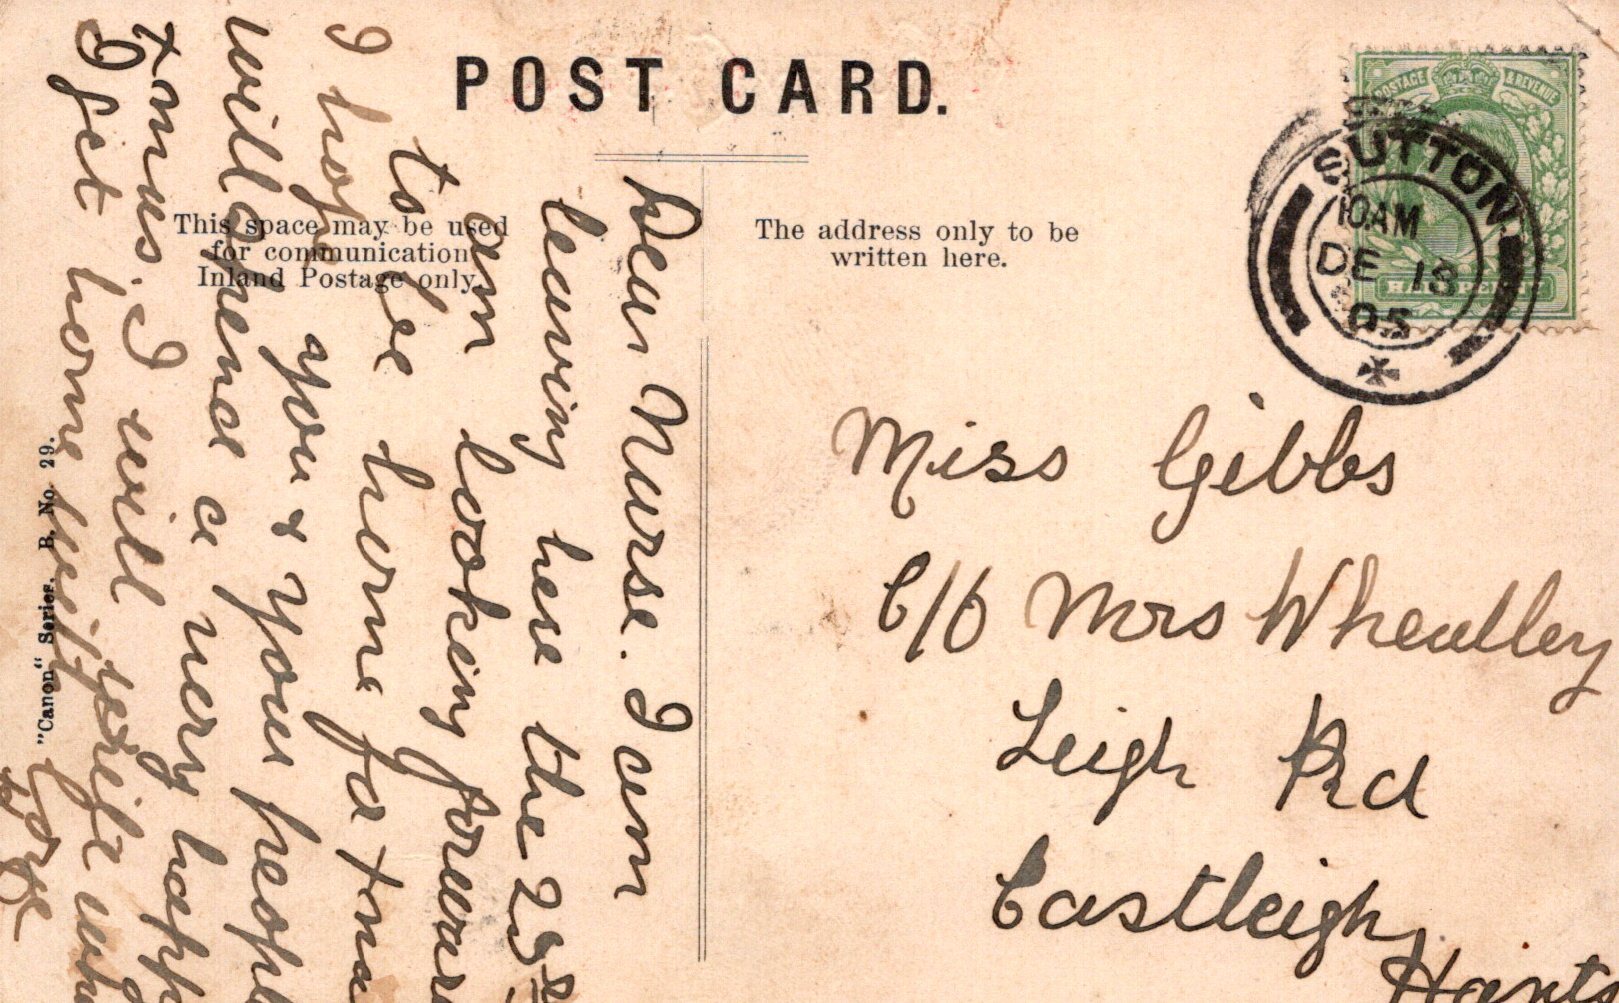 POST CARD.
This space may be used
for communication
Inland Postage only.
The address only to be
written here.
"Canon" Series. B. No. 29.
POSTAGE & REVENUE
HALFPENNY
SUTTON
10 AM
DE 18
05
Miss Gibbs
C/O Mrs Wheatley
Leigh Rd
Eastleigh
Hants
Dear Nurse. I am
leaving here the
am looking forward
to be home for xmas
I hope you & your people
will hence a very happy
xmas. I will write when
I get home with
love